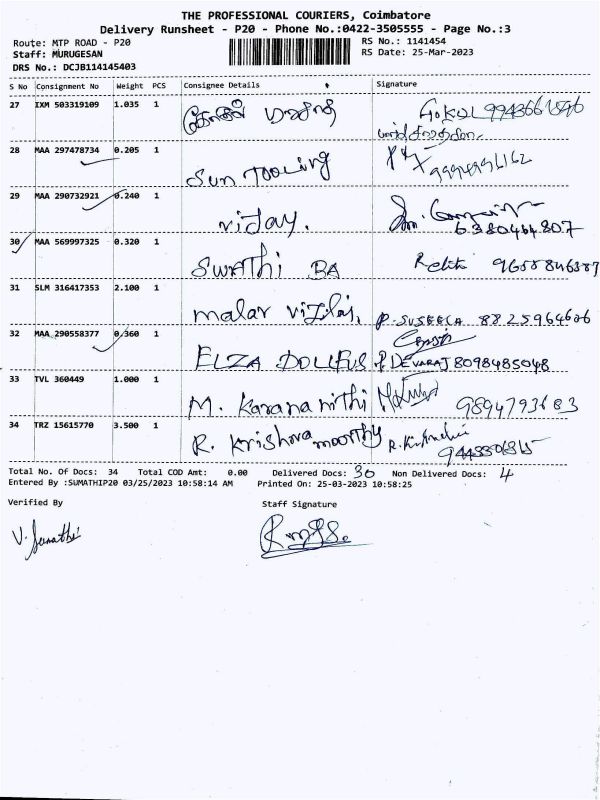 THE PROFESSIONAL COURIERS, Coimbatore
Delivery Runsheet - P20 - Phone No.:0422-3505555 - Page No.:3
Route: MTP ROAD - P20
Staff: MURUGESAN
DRS No.: DCJB114145403
RS No.: 1141454
RS Date: 25-Mar-2023
S No Consignment No Weight PCS Consignee Details Signature
27 IXM 503319109 1.035 1
28 MAA 297478734 0.205 1 Sun Tooling
29 MAA 290732921 0.240 1 viday. 6380464807
30 MAA 569997325 0.320 1 Swathi BA
31 SLM 316417353 2.100 1 malar P. SUSEELA 8825964606
32 MAA 290558377 0.360 1 ELZA DOLLFUS P DEVARAJ 8098485048
33 TVL 360449 1.000 1 M. Karana nithi
34 TRZ 15615770 3.500 1 R. Krishnamoorthy
Total No. Of Docs: 34 Total COD Amt: 0.00 Delivered Docs: 30 Non Delivered Docs: 4
Entered By :SUMATHIP20 03/25/2023 10:58:14 AM Printed On: 25-03-2023 10:58:25
Verified By Staff Signature
V. Sumathi